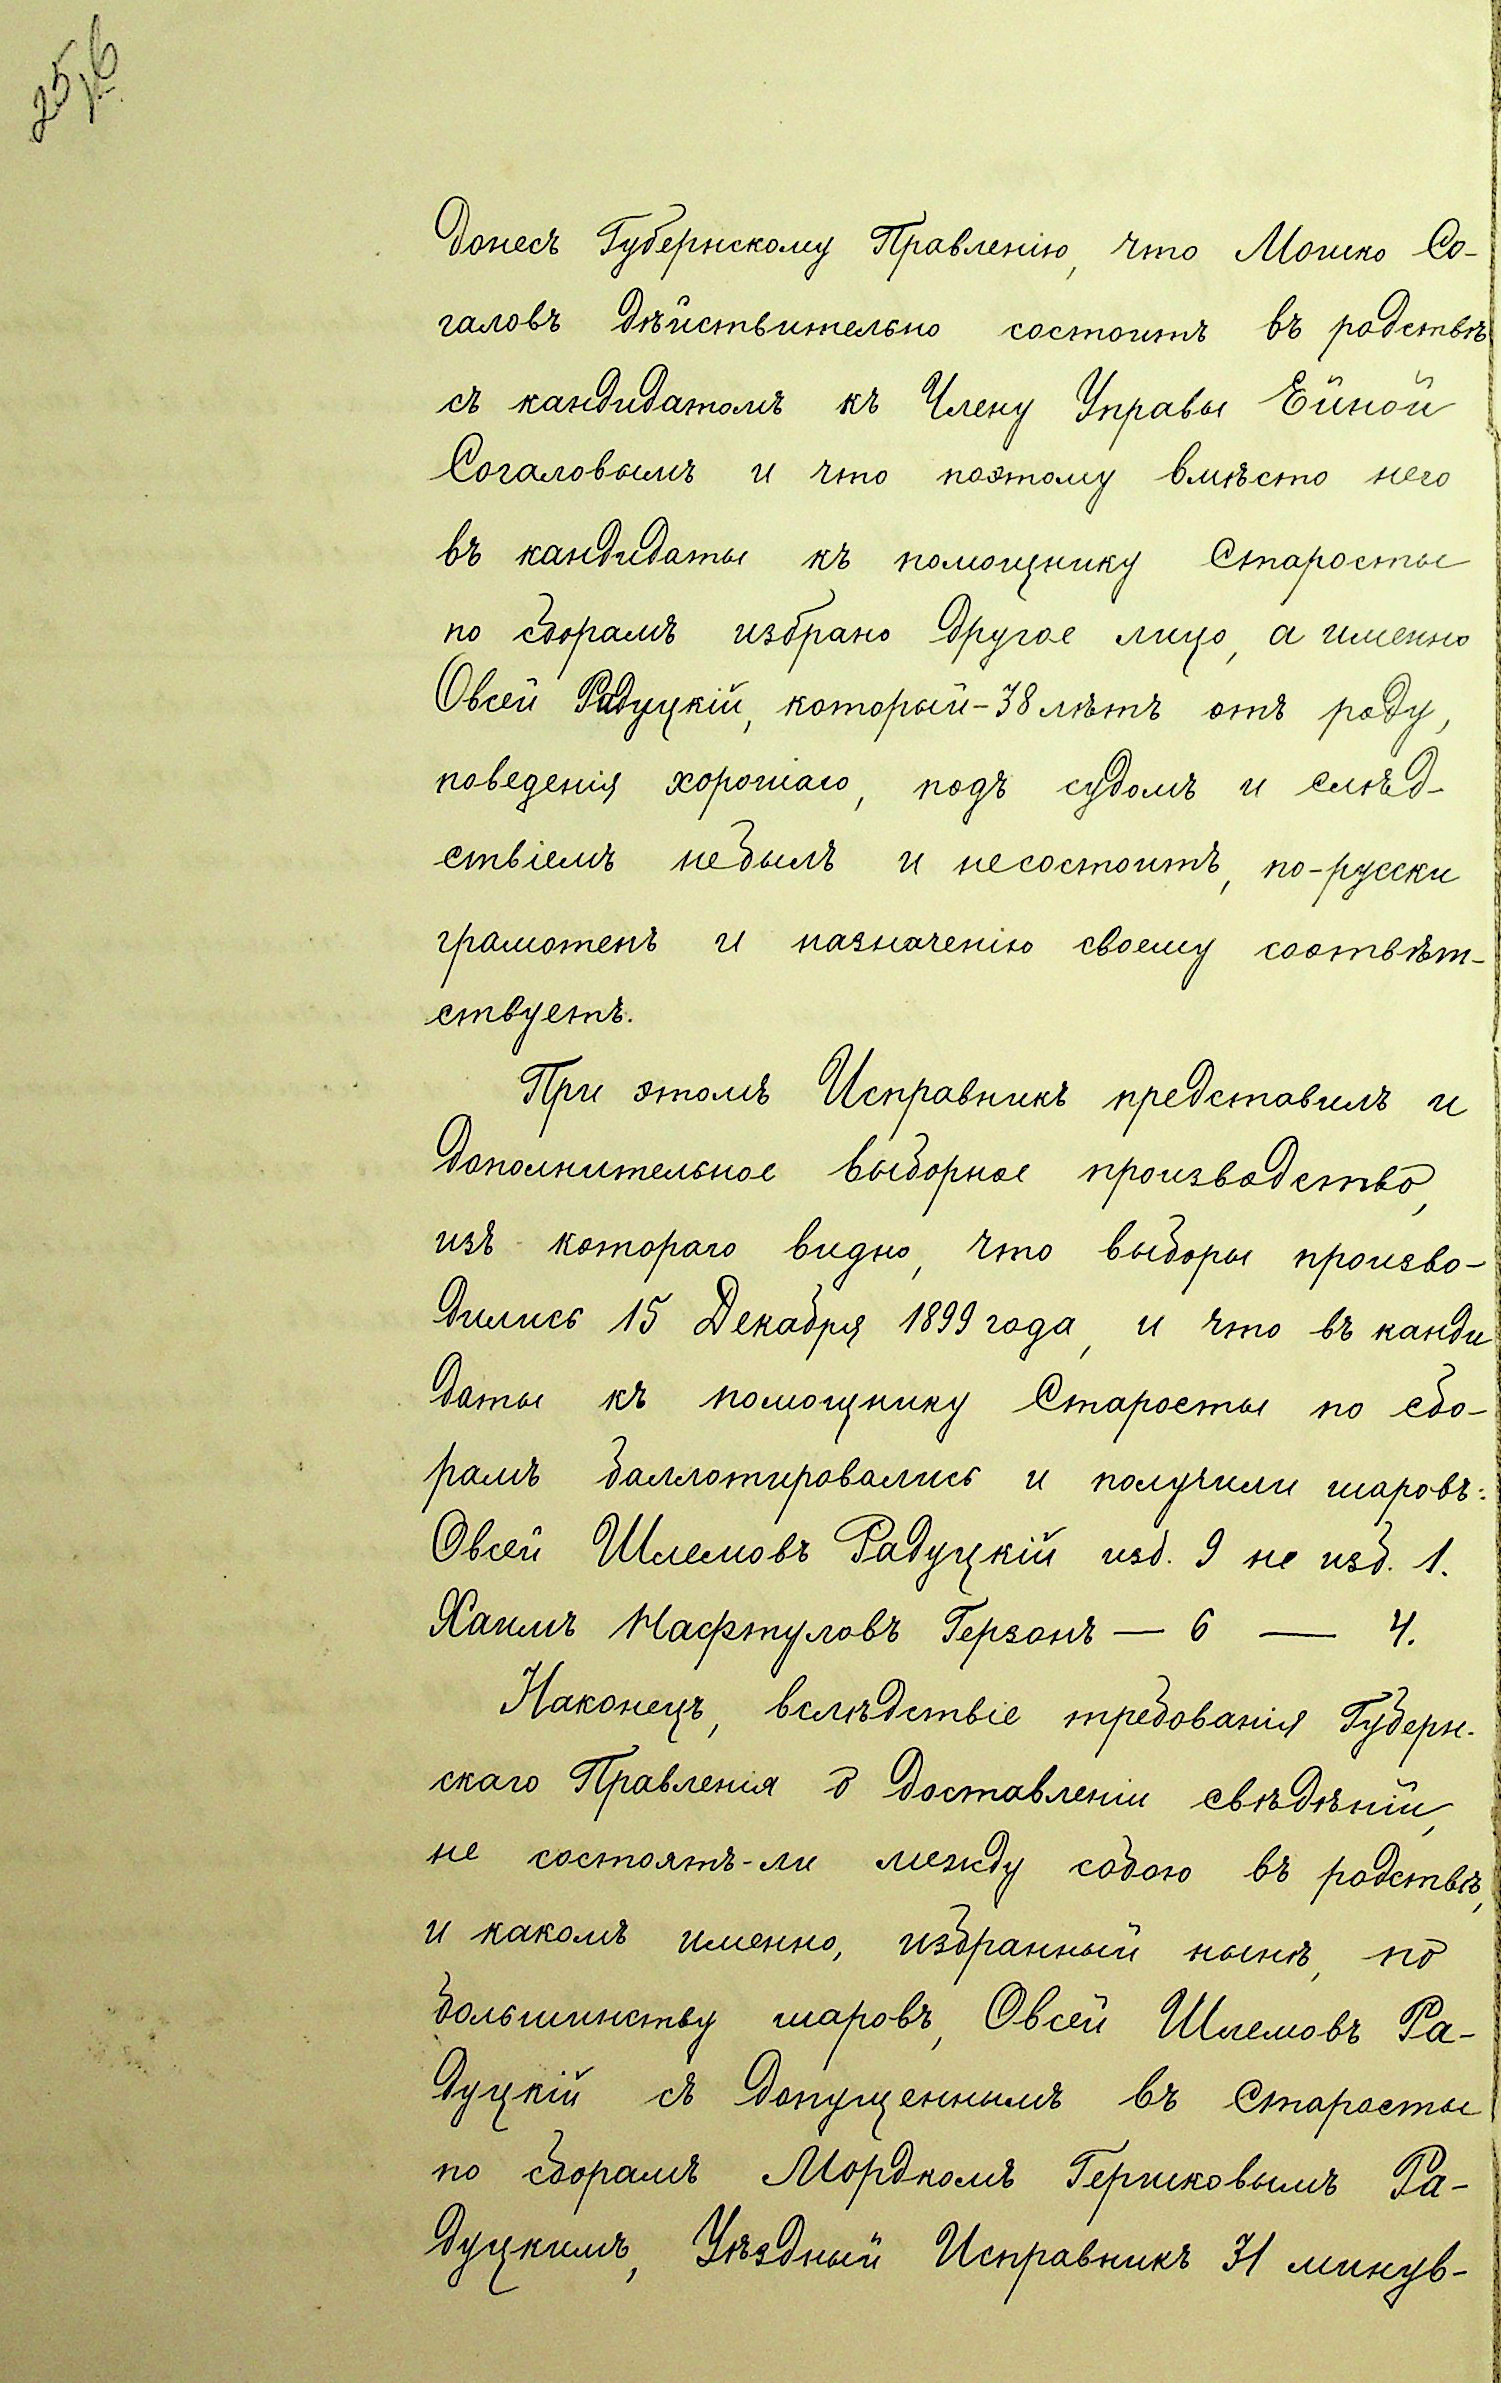 25 в
донесъ Губернскому Правленію, что Мошко Со-
галовъ дѣйствительно состоитъ въ родствѣ
съ кандидатомъ къ Члену Управы Ейной
Согаловымъ и что поэтому вмѣсто него
въ кандидаты къ помощнику Старосты
по сборамъ избрано другое лицо, а именно
Овсей Радуцкій, который-38 лѣтъ отъ роду,
поведенія хорошаго, подъ судомъ и слѣд-
ствіемъ небылъ и несостоитъ, по-русски
грамотенъ и назначенію своему соотвѣт-
ствуетъ.
При этомъ Исправникъ представилъ и
дополнительное выборное производство,
изъ котораго видно, что выборы произво-
дились 15 Декабря 1899 года, и что въ канди
даты къ помощнику Старосты по сбо-
рамъ баллотировались и получили шаровъ:
Овсей Шлемовъ Радуцкій изб. 9 не изб. 1.
Хаимъ Нафтуловъ Герзонъ — 6 — 4.
Наконецъ, вслѣдствіе требованія Губерн-
скаго Правленія о доставленіи свѣдѣній,
не состоятъ-ли между собою въ родствѣ,
и какомъ именно, избранный нынѣ, по
большинству шаровъ, Овсей Шлемовъ Ра-
дуцкій съ допущеннымъ въ Старосты
по сборамъ Мордкомъ Гершковымъ Ра-
дуцкимъ, Уѣздный Исправникъ 31 минув-